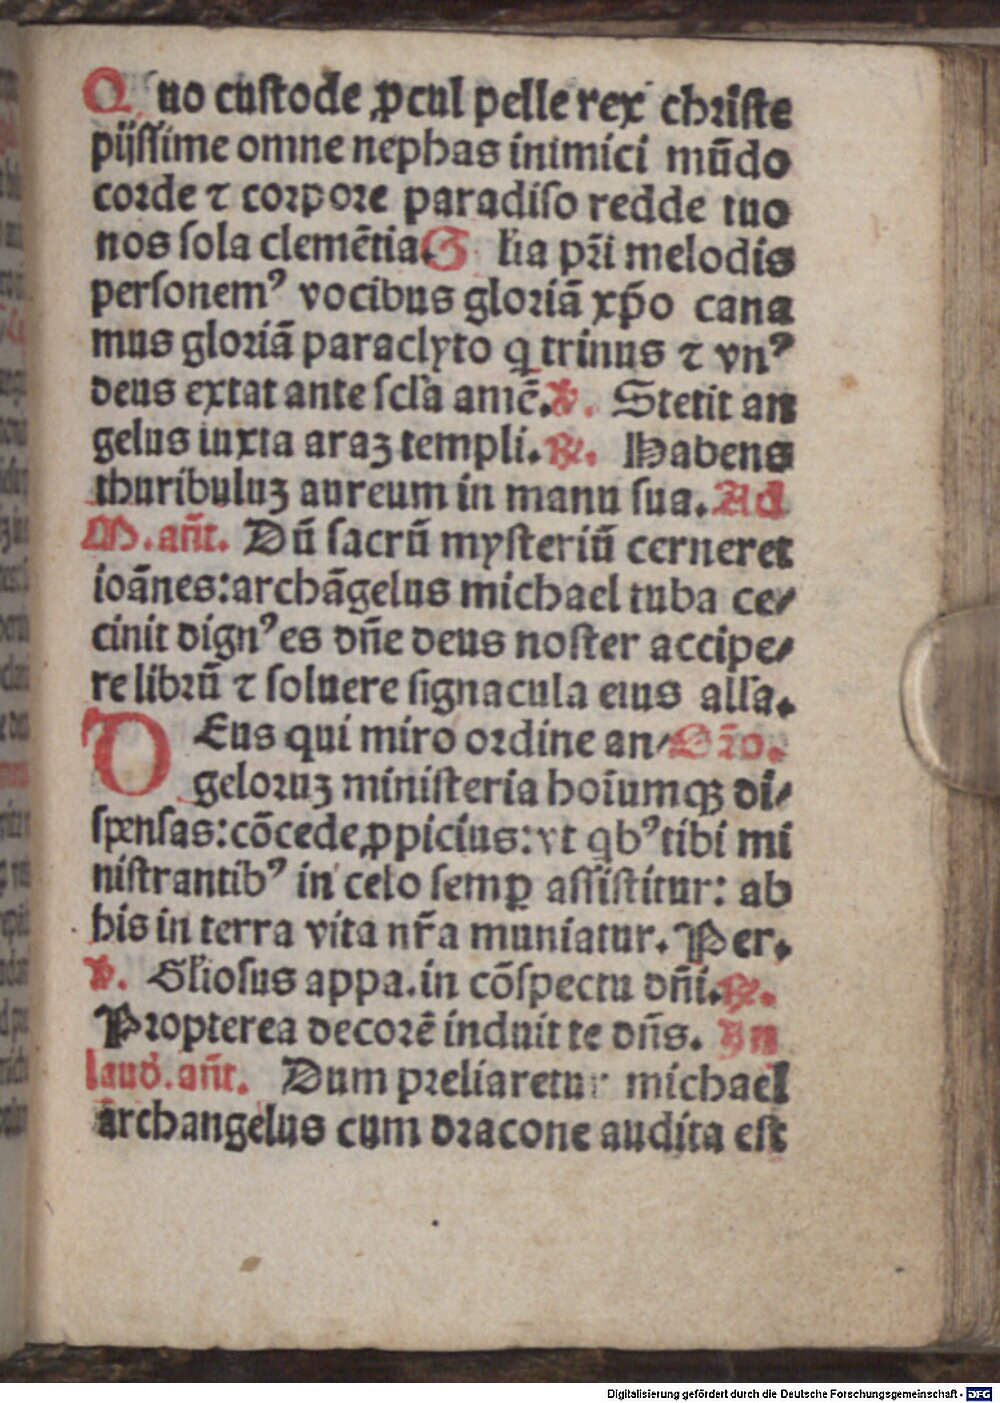 Quo custode ꝓcul pelle rex christe
pijssime omne nephas inimici mūdo
corde ⁊ corpore paradiso redde tuo
nos sola clemētia. Gl̄ia pr̄i melodis
personemꝰ vocibus gloriā xp̄o cana
mus gloriā paraclyto q̇ trinus ⁊ vnꝰ
deus extat ante scl̄a amē. ℣. Stetit an
gelus iuxta araꝫ templi. ℟. Habens
thuribuluꝫ aureum in manu sua. Ad
M. an̄t. Dū sacrū mysteriū cerneret
ioānes: archāgelus michael tuba ce/
cinit dignꝰ es dn̄e deus noster accipe/
re librū ⁊ soluere signacula eius all̄a.
DEus qui miro ordine an/ Or̄o.
geloruꝫ ministeria hoīumqꝫ di/
spensas: cōcede ꝓpicius: vt qbꝰ tibi mi
nistrantibꝰ in celo semꝑ assistitur: ab
his in terra vita nr̄a muniatur. Per.
℣. Gl̄iosus appa. in cōspectu dn̄i. ℟.
Propterea decorē induit te dn̄s. In
laud̄. an̄t. Dum preliaretur michael
archangelus cum dracone audita est
Digitalisierung gefördert durch die Deutsche Forschungsgemeinschaft - DFG